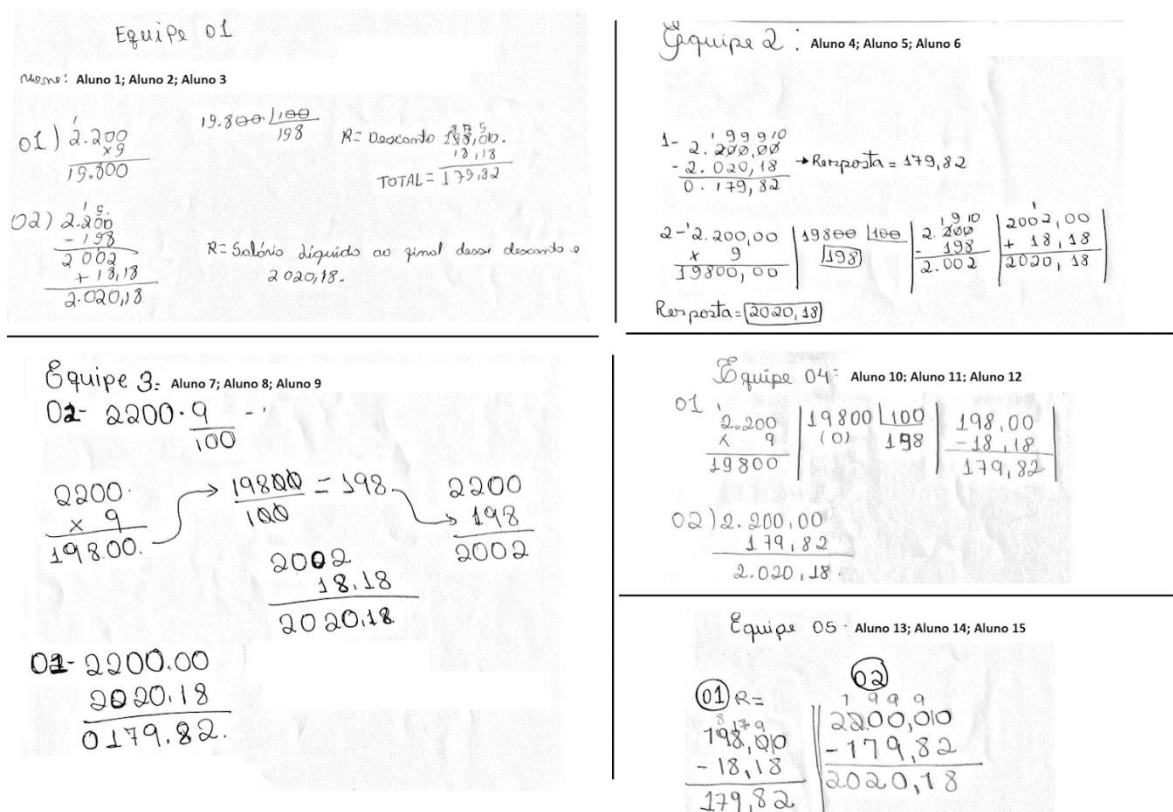 Equipe 01
Nome: Aluno 1; Aluno 2; Aluno 3
01) 2.200
x9
19.800
19.800 |100
198
R= Desconto 198,00.
18,18
TOTAL = 179,82
02) 2.200
- 198
2 002
+ 18,18
2.020,18
R= Salário líquido ao final desse desconto e
2020,18.
Equipe 2: Aluno 4; Aluno 5; Aluno 6
1- 2.200,00
- 2.020,18
0.179,82
→ Resposta = 179,82
2- 2.200,00
x 9
19800,00
19800 |100
198
2.200
- 198
2.002
2002,00
+ 18,18
2020,18
Resposta= 2020,18
Equipe 3: Aluno 7; Aluno 8; Aluno 9
02- 2200. 9
100
2200.
x 9
19800.
→ 19800 = 198
100
2200
198
2002
2002
18.18
2020,18
01- 2200.00
2020.18
0179.82.
Equipe 04: Aluno 10; Aluno 11; Aluno 12
01
2.200
x 9
19800
19800 |100
(0) 198
198,00
-18,18
179,82
02) 2.200,00
179,82
2.020,18.
Equipe 05- Aluno 13; Aluno 14; Aluno 15
01 R=
8 17 9
198,00
- 18,18
179,82
02
1 9 9 9
2200,010
-179,82
2020,18